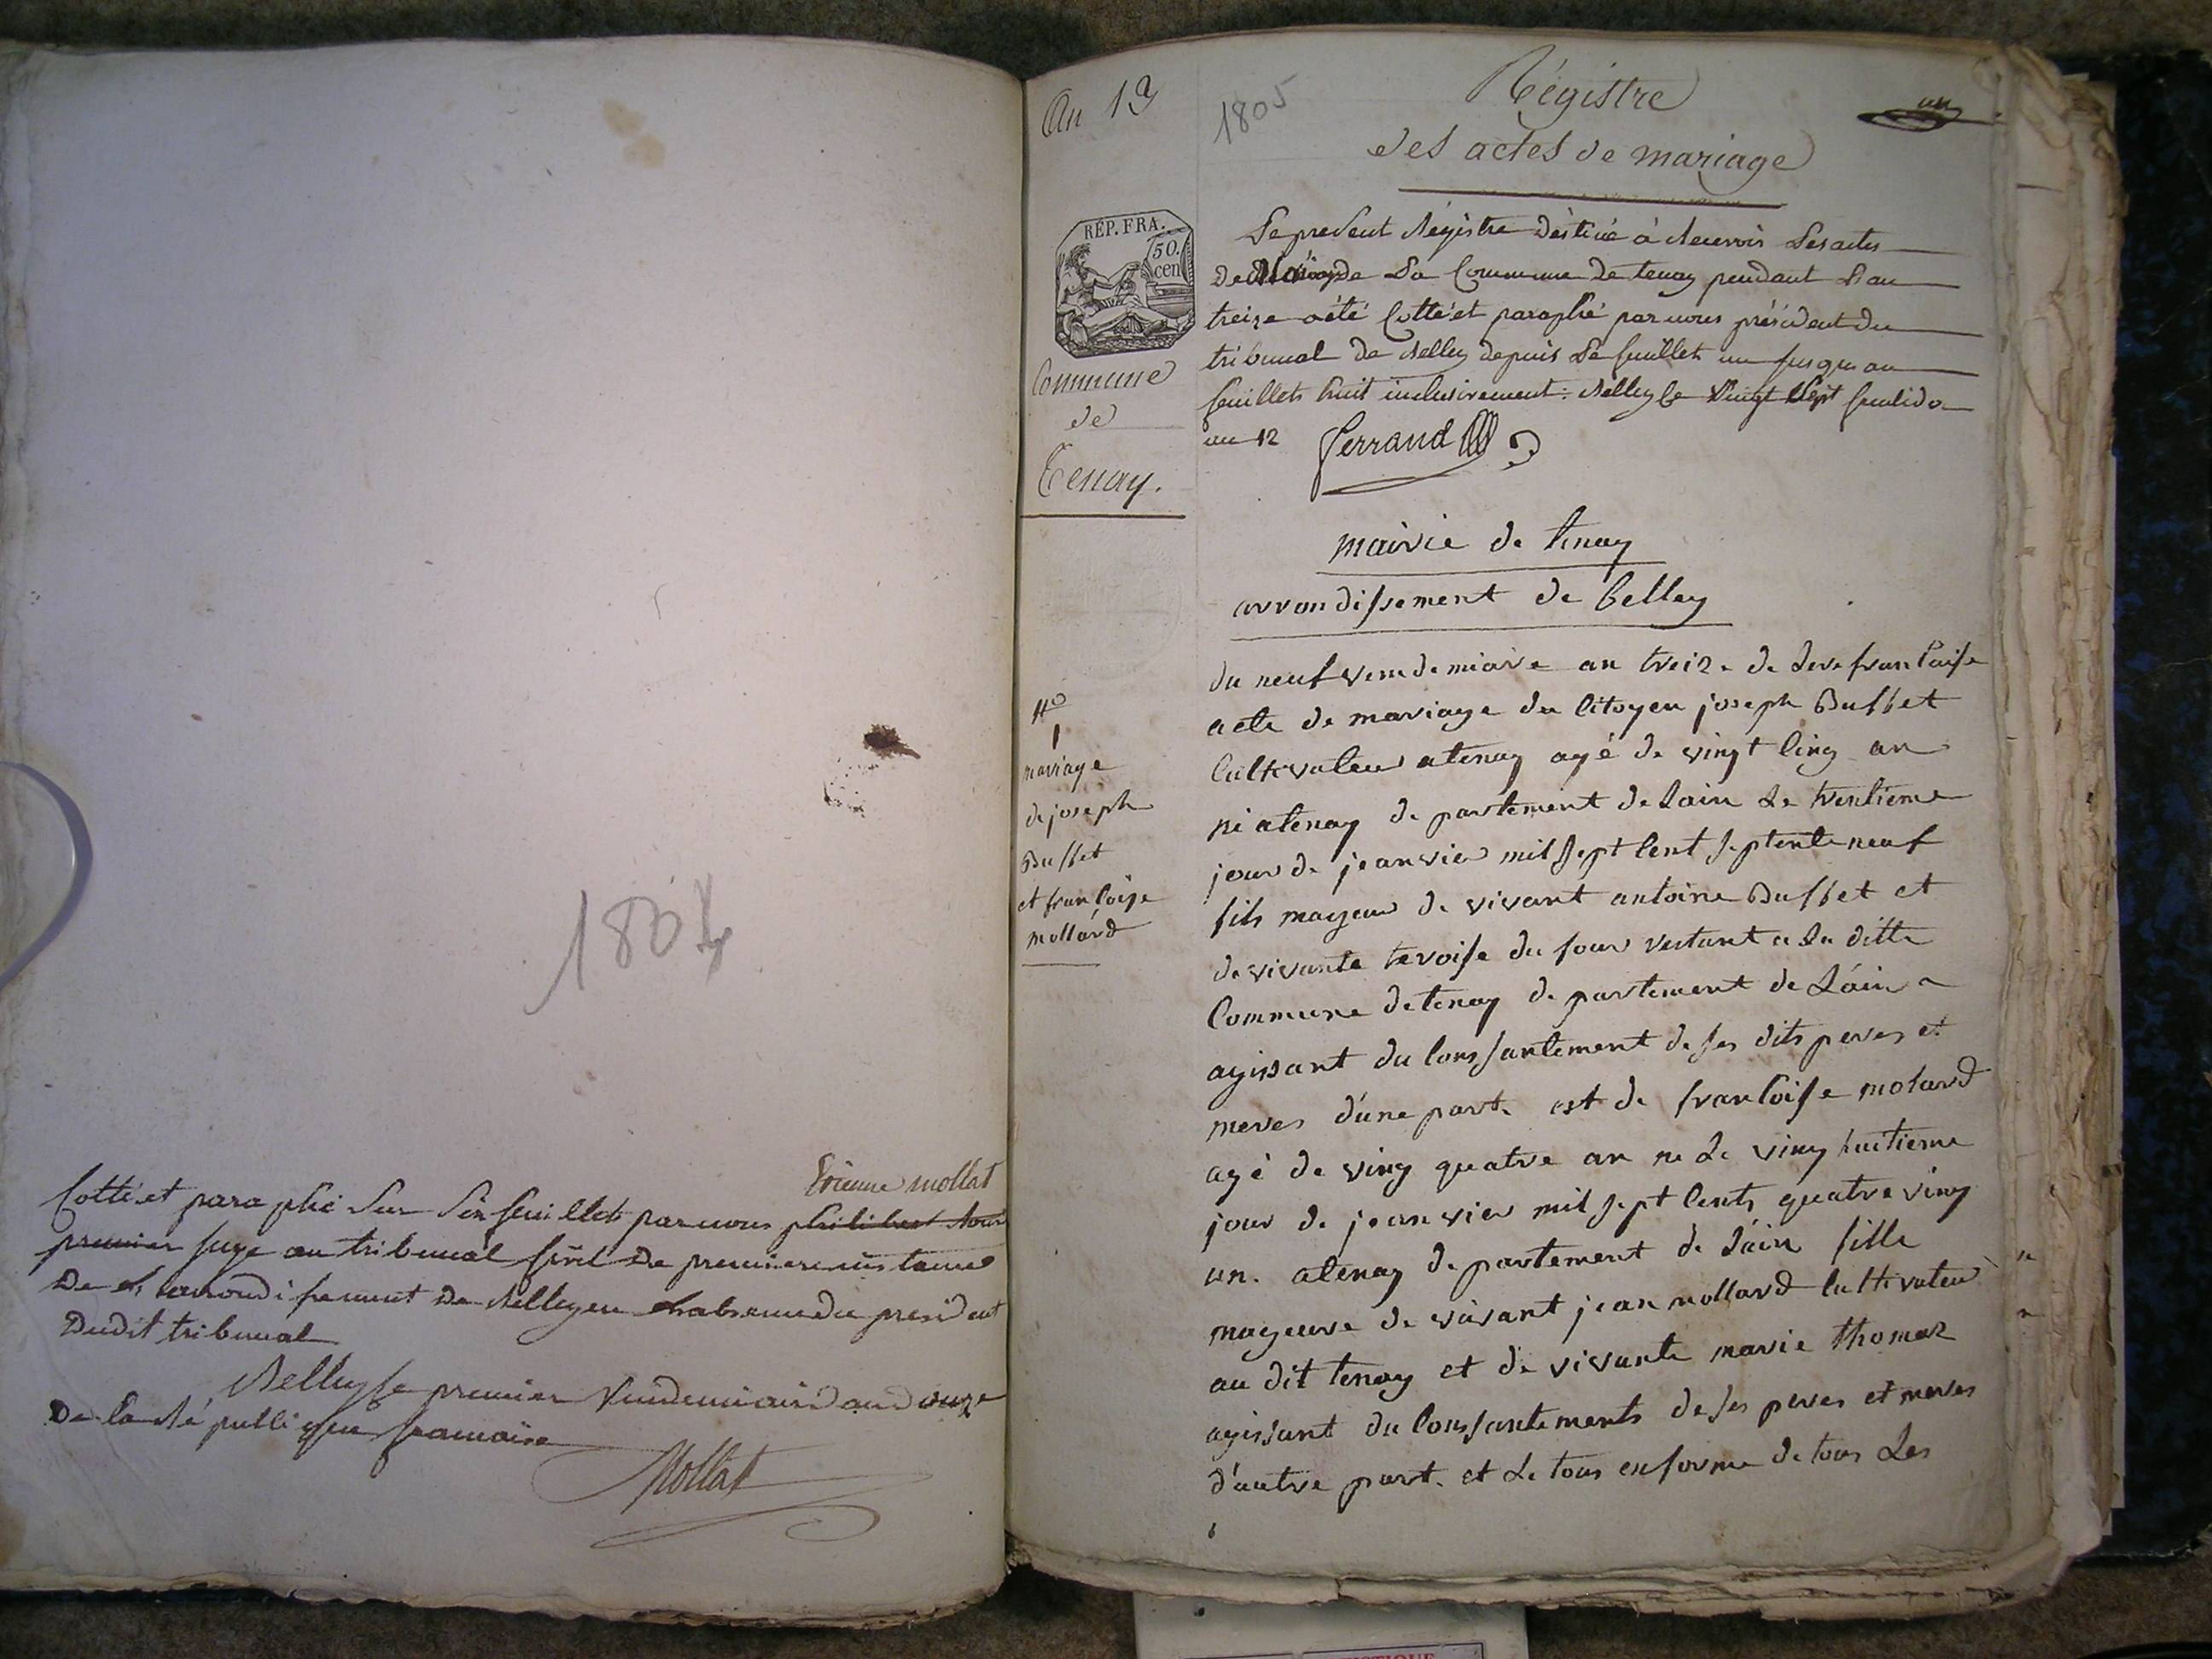 1804
Etienne mollat
Cotté et paraphé sur six feuillets par nous philibert
premier juge au tribunal civil de premiere instance
de l'arrondissement de Belley en l'absence du president
dudit tribunal
Belley le premier Vendemiaire an douze
De la République francaise
Mollat
An 13
1805
Régistre
des actes de mariage
un
RÉP. FRA.
50.
cen
Commune
de
Tenay.
Le present Régistre déstiné à Recevoir Les actes
De Mariage de La Commune de tenay pendant L'an
treize a été Cotté et paraphé par nous président du
tribunal de Belley depuis Le feuillet un jusqu'au
feuillet huit inclusivement. Belley le Vingt Sept fructidor
an 12 ferrand
mairie de tenay
arrondissement de belley
N°
1
mariage
de joseph
Buffet
et francoise
mollard
du neuf vendemiaire an treize de Lere francaise
acte de mariage du Citoyen joseph Buffet
Cultivateur atenay agé de vingt cinq an
né atenay departement de Lain Le trentieme
jour de jeanvier mil sept cent septente neuf
fils mageur de vivant antoine Buffet et
de vivante teroise du four restant a La ditte
Commune de tenay departement de Láin
agissant du conssantement de ses dits peres et
meres d'une part. est de francoise molard
agé de ving quatre an ne Le ving huitieme
jour de jeanvier mil sept cents quatre ving
un. atenay departement de Láin fille
mageure de vivant jean mollard cultivateur
au dit tenay et de vivante marie thomaz
agissant du conssantements de ses peres et meres
d'autre part. et Le tous enforme de tous Les